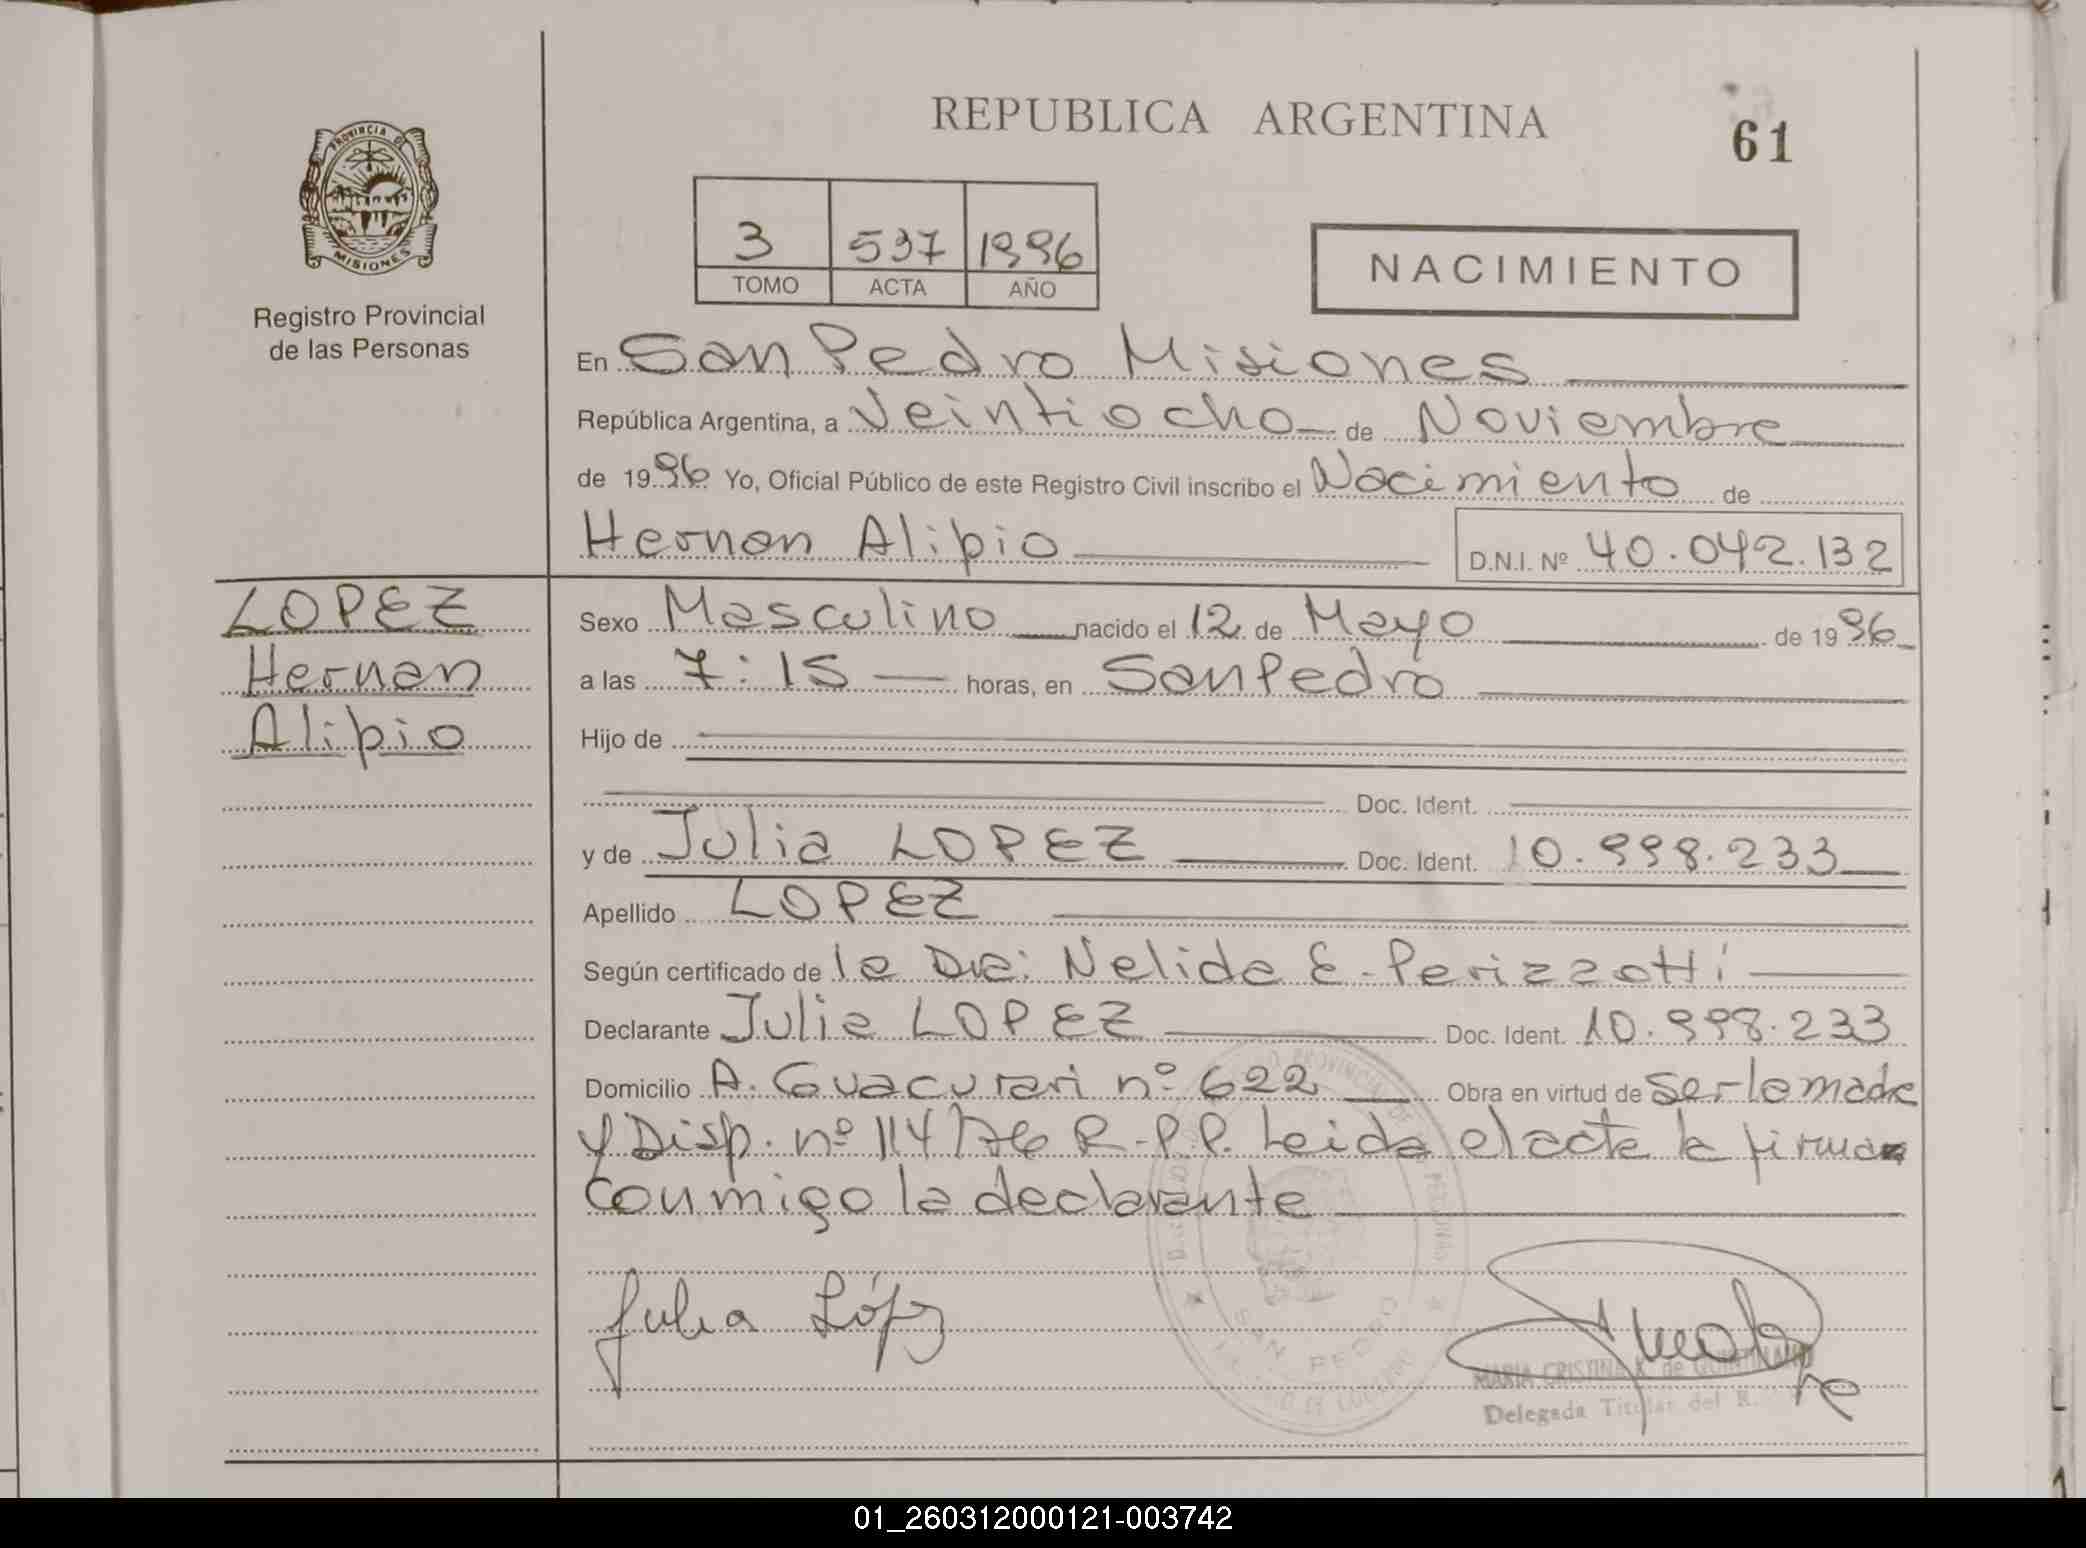 REPUBLICA ARGENTINA
61
PROVINCIA DE
MISIONES
Registro Provincial
de las Personas
3 537 1996
TOMO ACTA AÑO
NACIMIENTO
En San Pedro Misiones
República Argentina, a Veintiocho de Noviembre
de 1996 Yo, Oficial Público de este Registro Civil inscribo el Nacimiento de
Hernan Alipio D.N.I. Nº 40.042.132
LOPEZ
Hernan
Alipio
Sexo Masculino nacido el 12 de Mayo de 1996
a las 7:15 horas, en San Pedro
Hijo de
Doc. Ident.
y de Julia LOPEZ Doc. Ident. 10.998.233
Apellido LOPEZ
Según certificado de la Dra: Nelida E. Perizzotti
Declarante Julia LOPEZ Doc. Ident. 10.998.233
Domicilio A. Guacurari nº 622 Obra en virtud de ser la madre
y Disp. nº 114/76 R.P.P. Leida el acta la firma
conmigo la declarante
Julia López
SAN PEDRO
MARIA CRISTINA K. de
Delegada Titular del R.
01_260312000121-003742